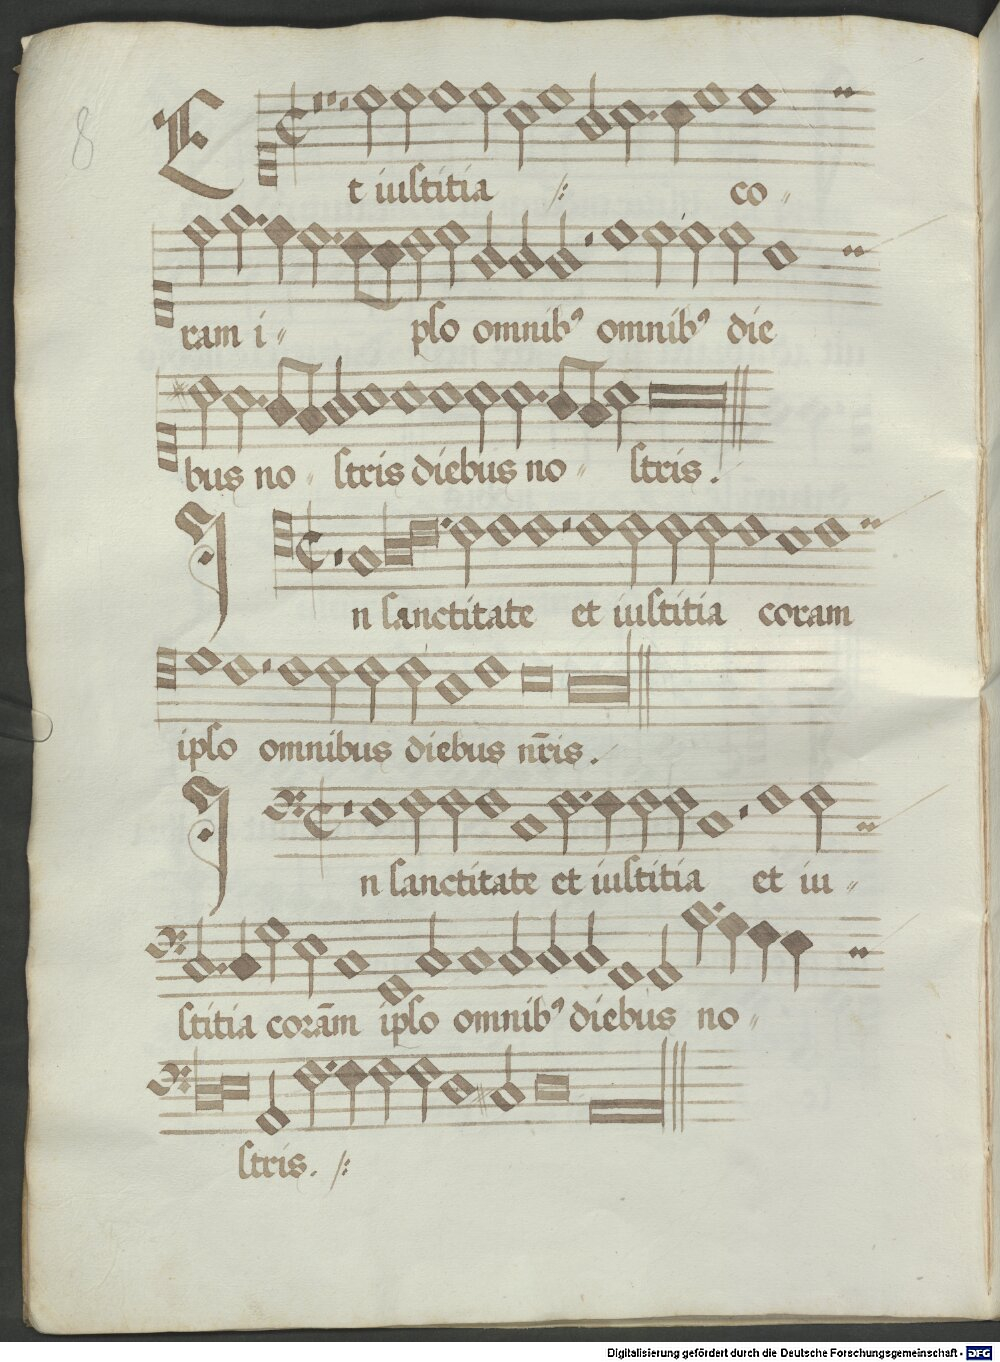 8
Et iustitia co
ram i pso omnibꝰ omnibꝰ die
bus no stris diebus no stris.
In sanctitate et iustitia coram
ipso omnibus diebus nr̄is.
In sanctitate et iustitia et iu
stitia corām ipso omnibꝰ diebus no
stris.
Digitalisierung gefördert durch die Deutsche Forschungsgemeinschaft - DFG